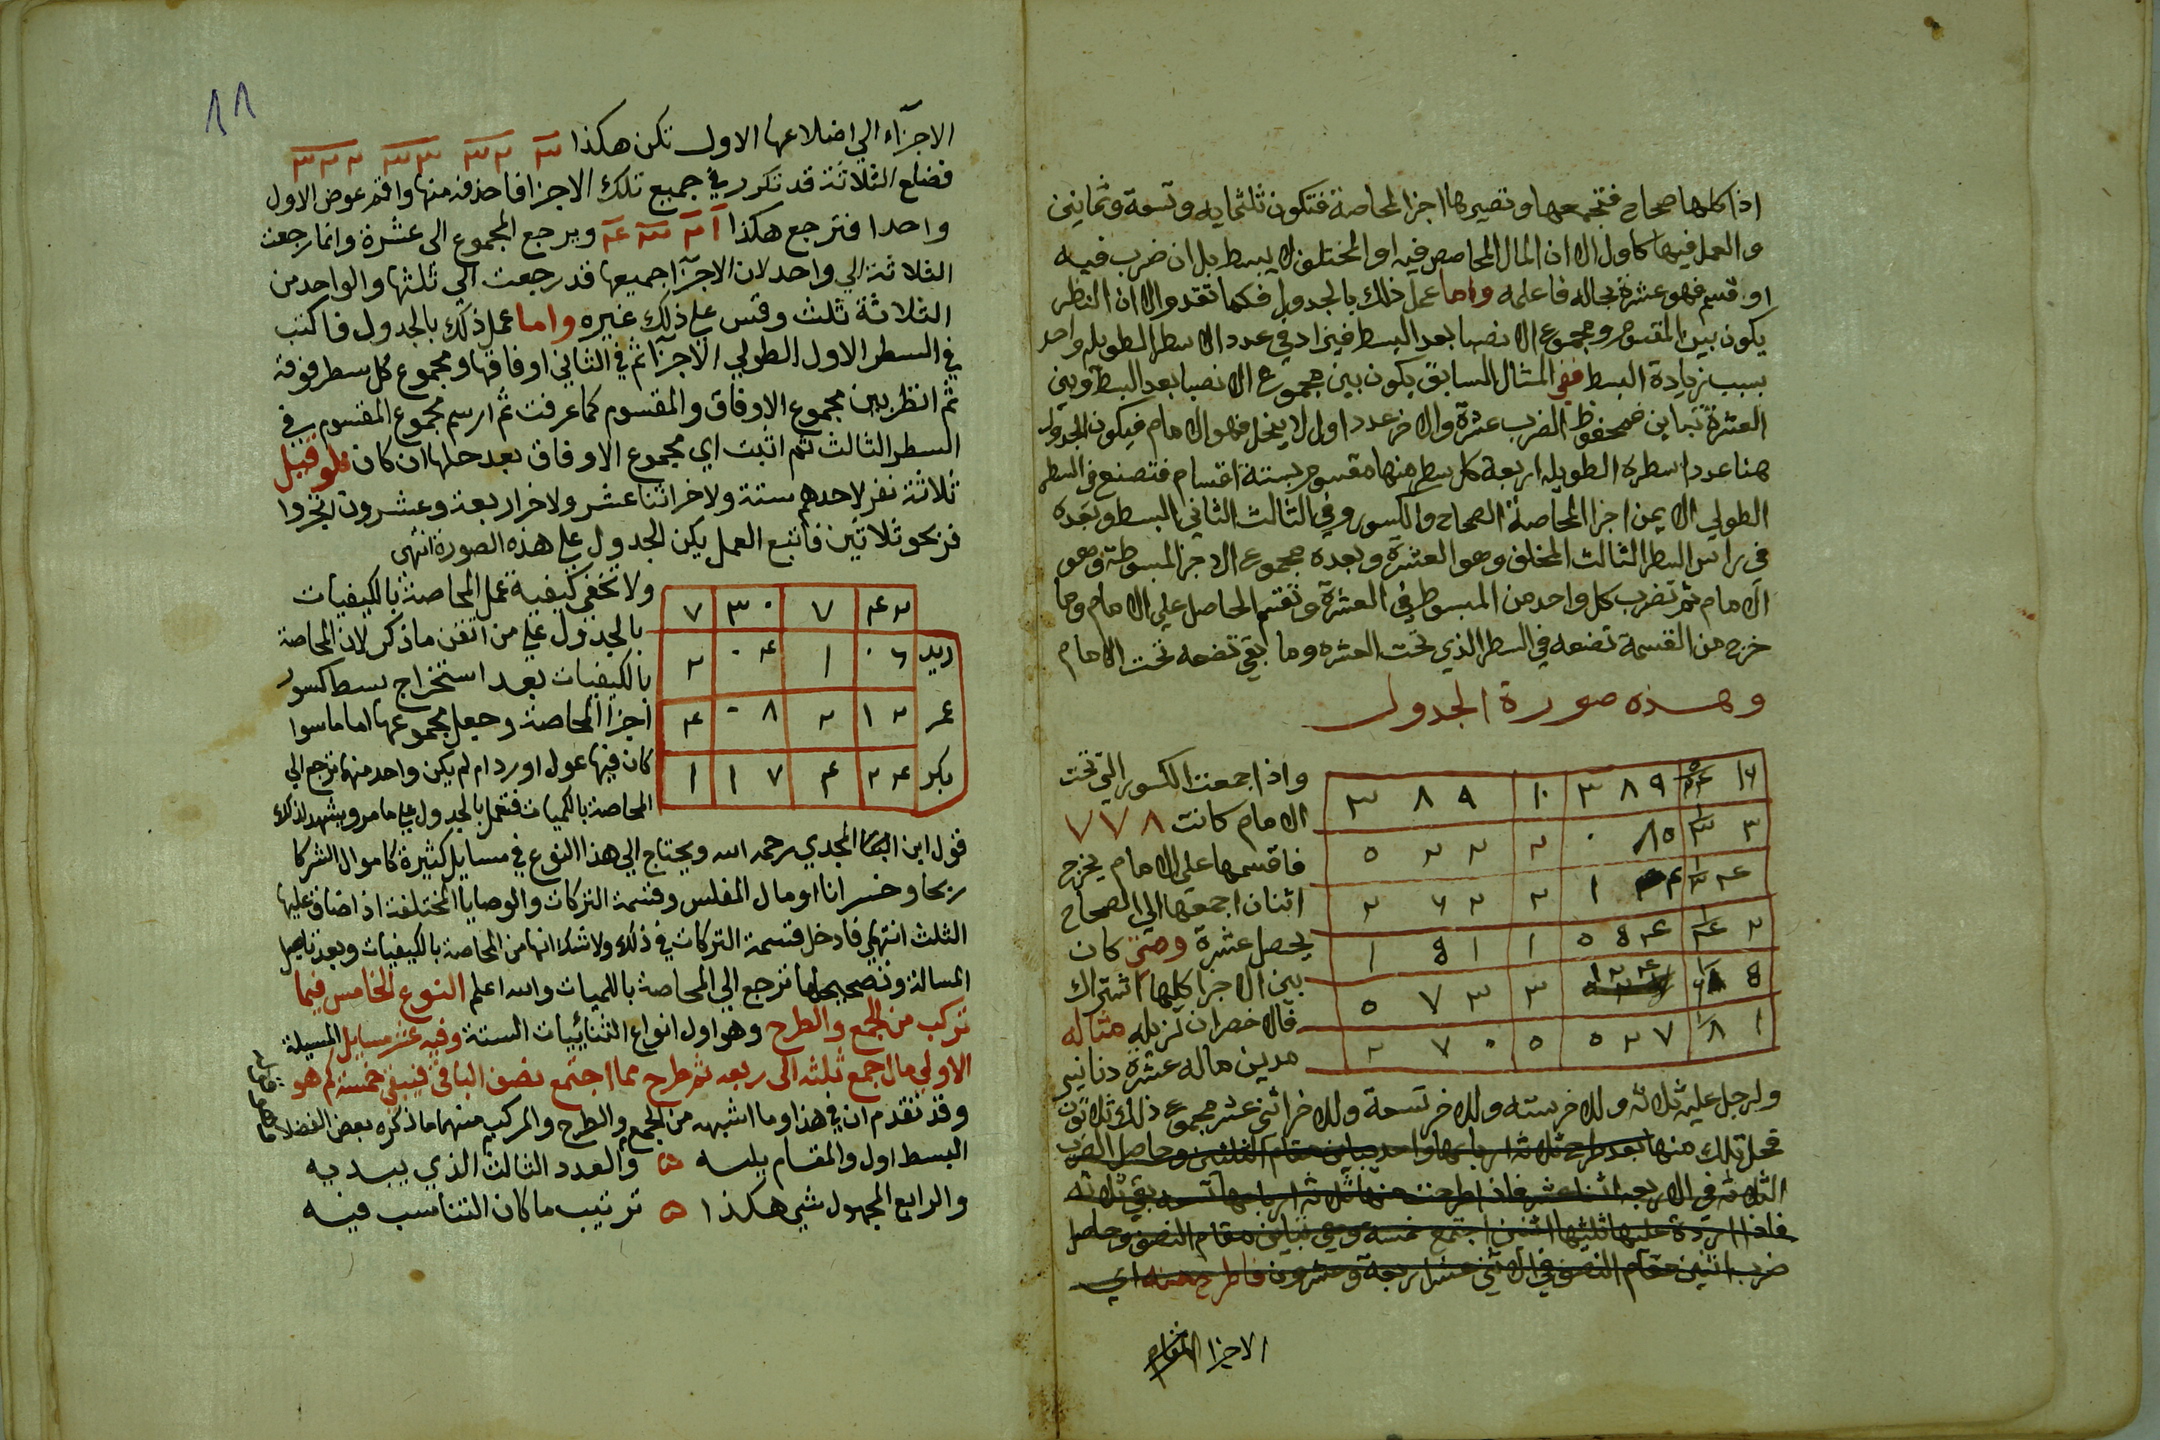 اذا كلها صحاح فتجمعها وتصيرها اجزا المحاصة فتكون ثلثمايه وتسعة وثمانين
والعمل فيها كاول الا ان المال المحاصص فيه او المختلف لا يبسط بل ان ضرب فيه
او قسم فهو عشرة بحاله فاعلمه واما عمل ذلك بالجدول فكما تقدم الا ان النظر
يكون بين المقسوم ومجموع الانصبا بعد البسط فيزاد في عدد الاسطر الطويله واحد
بسبب زيادة البسط ففي المثال السابق يكون بين مجموع الانصبا بعد البسط وبين
العشرة تباين فمحفوظ الضرب عشرة والاخر عدد اول لا ينحل فهو الامام فيكون الجدول
هنا عدد اسطره الطويله اربعة كل سطر منها مقسوم بستة اقسام فتصنع في السطر
الطولي الايمن اجزا المحاصة الصحاح والكسور وفي الثالث الثاني البسط وبعده
في راس السطر الثالث المخلف وهو العشرة وبعده مجموع الاجزا المبسوطة وهو
الامام ثم تضرب كل واحد من المبسوط في العشرة وتقسم الحاصل على الامام وما
خرج من القسمة تضعه في السطر الذي تحت العشره وما بقي تضعه تحت الامام
وهذه صورة الجدول
واذا جمعت الكسور التي تحت
الامام كانت ٧٧٨
فاقسمها على الامام يخرج
اثنان اجمعها الي الصحاح
يحصل عشرة ومتى كان
بين الاجزا كلها اشتراك
فالاخصر ان تزيله مثاله
مدين ماله عشرة دنانير
ولرجل عليه ثلاثه وللاخر سته وللاخر تسعة وللاخر اثني عشر مجموع ذلك ثلاثون
فحل تلك منها بعد طرح ثلاثه ارباعها واحد مباين مقام الثلثين وحاصل الضرب
الثلاثه في الاربعه اثنا عشر فاذا طرحت منها ثلاثه ارباعها تسعه بقي ثلاثه
فاذا زدت عليها ثلثيها اثنين اجتمع خمسه وهي تباين مقام النصف وحاصل
ضرب اثنين مقام النصف في الاثني عشر اربعة وعشرون فاطرح منه اي
الاجزا
١١
الاجزاء الي اضلاعها الاول تكن هكذا ٣ ٢٣ ٣٣ ٢٢٣
فضلع الثلاثة قد تكرر في جميع تلك الاجزا فاحذفه منها واقم عوض الاول
واحدا فترجع هكذا ١ ٢ ٣ ٤ ويرجع المجموع الى عشرة وانما رجعت
الثلاثة الي واحد لان الاجزا جميعها قد رجعت الى ثلثها والواحد من
الثلاثة ثلث وقس علي ذلك غيره واما عمل ذلك بالجدول فاكتب
في السطر الاول الطولي الاجزا ثم في الثاني اوفاقها ومجموع كل سطر فوقه
ثم انظر بين مجموع الاوفاق والمقسوم كما عرفت ثم ارسم مجموع المقسوم في
السطر الثالث ثم اثبت اي مجموع الاوفاق بعد حلها ان كان فلو قيل
ثلاثة نفر لاحدهم ستة ولاخر اثنا عشر ولاخر اربعة وعشرون اتجروا
فربحو ثلاثين فاتبع العمل يكن الجدول علي هذه الصورة انتهى
ولا تخفي كيفية عمل المحاصة بالكيفيات
بالجدول علي من اتقن ما ذكر لان المحاصة
بالكيفيات بعد استخراج بسط كسور
اجزا المحاصة وجعل مجموعها اماما سوا
كان فيها عول او رد ام لم يكن واحد منها ترجع الي
المحاصة بالكميات فتعمل بالجدول علي ما مر ويشهد لذلك
٤٢ ٧ ٣٠ ٧
زيد ٠٦ ١ ٠٤ ٢
عمر ١٢ ٢ ٠٨ ٤
بكر ٢٤ ٤ ١٧ ١
قول ابن المجدي رحمه الله ويحتاج الي هذا النوع في مسايل كثيرة كاموال الشركا
ربحا وخسرانا او مال المفلس وقسمة التركات والوصايا المختلفة اذ اضاق عليها
الثلث انتهي فادخل قسمة التركات في ذلك ولا شك انها من المحاصة بالكيفيات وبعد تاصيل
المسالة وتصحيحها ترجع الي المحاصة بالكميات والله اعلم النوع الخامس فيما
تركب من الجمع والطرح وهو اول انواع الثنائيات الستة وفيه عشر مسايل المسيلة
الاولي مال جمع ثلثه الى ربعه ثم طرح مما اجتمع نصف الباقي فبقى خمسة كم هو
وقد تقدم ان في هذا وما اشبهه من الجمع والطرح والمركب منهما ما ذكره بعض الفضلا
البسط اول والمقام يليه ۞ والعدد الثالث الذي يبديه
والرابع المجهول شي هكذا ۞ ترتيب ما كان التناسب فيه